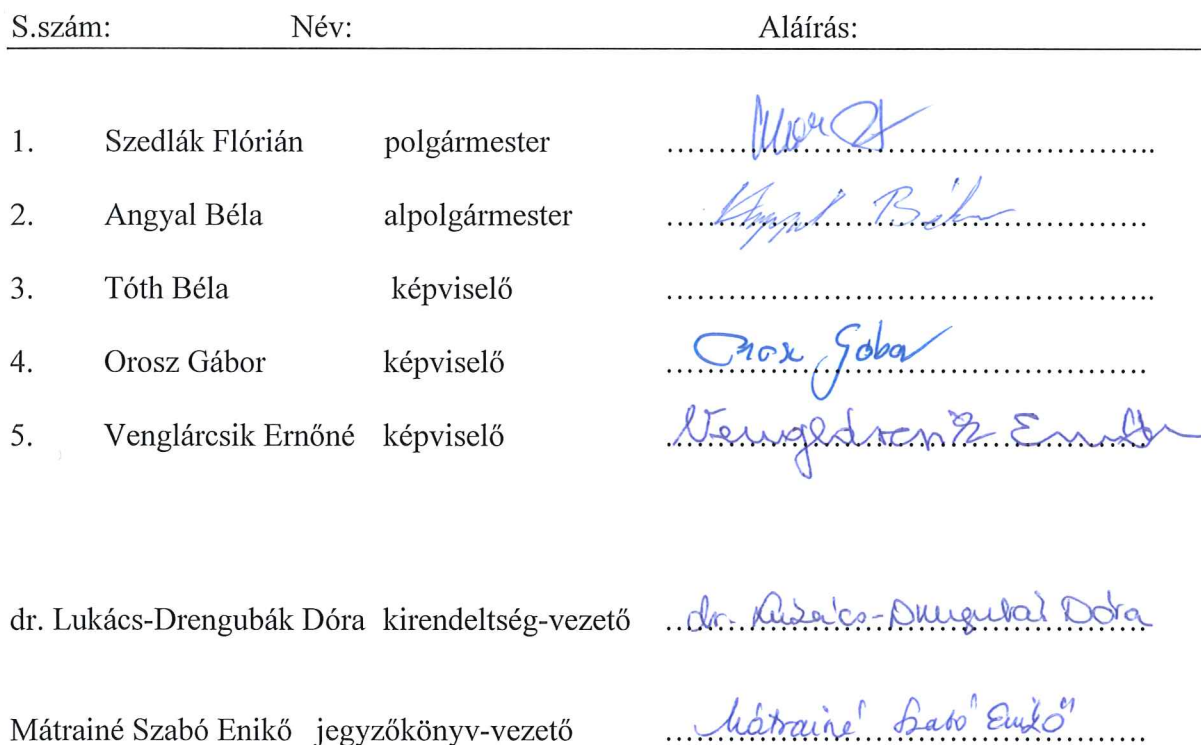 S.szám: Név: Aláírás:
1. Szedlák Flórián polgármester ................................................
2. Angyal Béla alpolgármester ................ Béla ................
3. Tóth Béla képviselő ................................................
4. Orosz Gábor képviselő Orosz Gábor
5. Venglárcsik Ernőné képviselő Venglárcsik Ernőné
dr. Lukács-Drengubák Dóra kirendeltség-vezető dr. Lukács-Drengubák Dóra
Mátrainé Szabó Enikő jegyzőkönyv-vezető Mátrainé Szabó Enikő